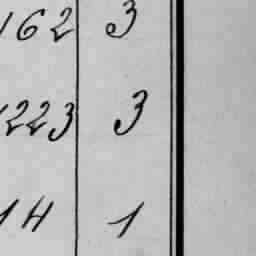 162 3
1223 3
14 1